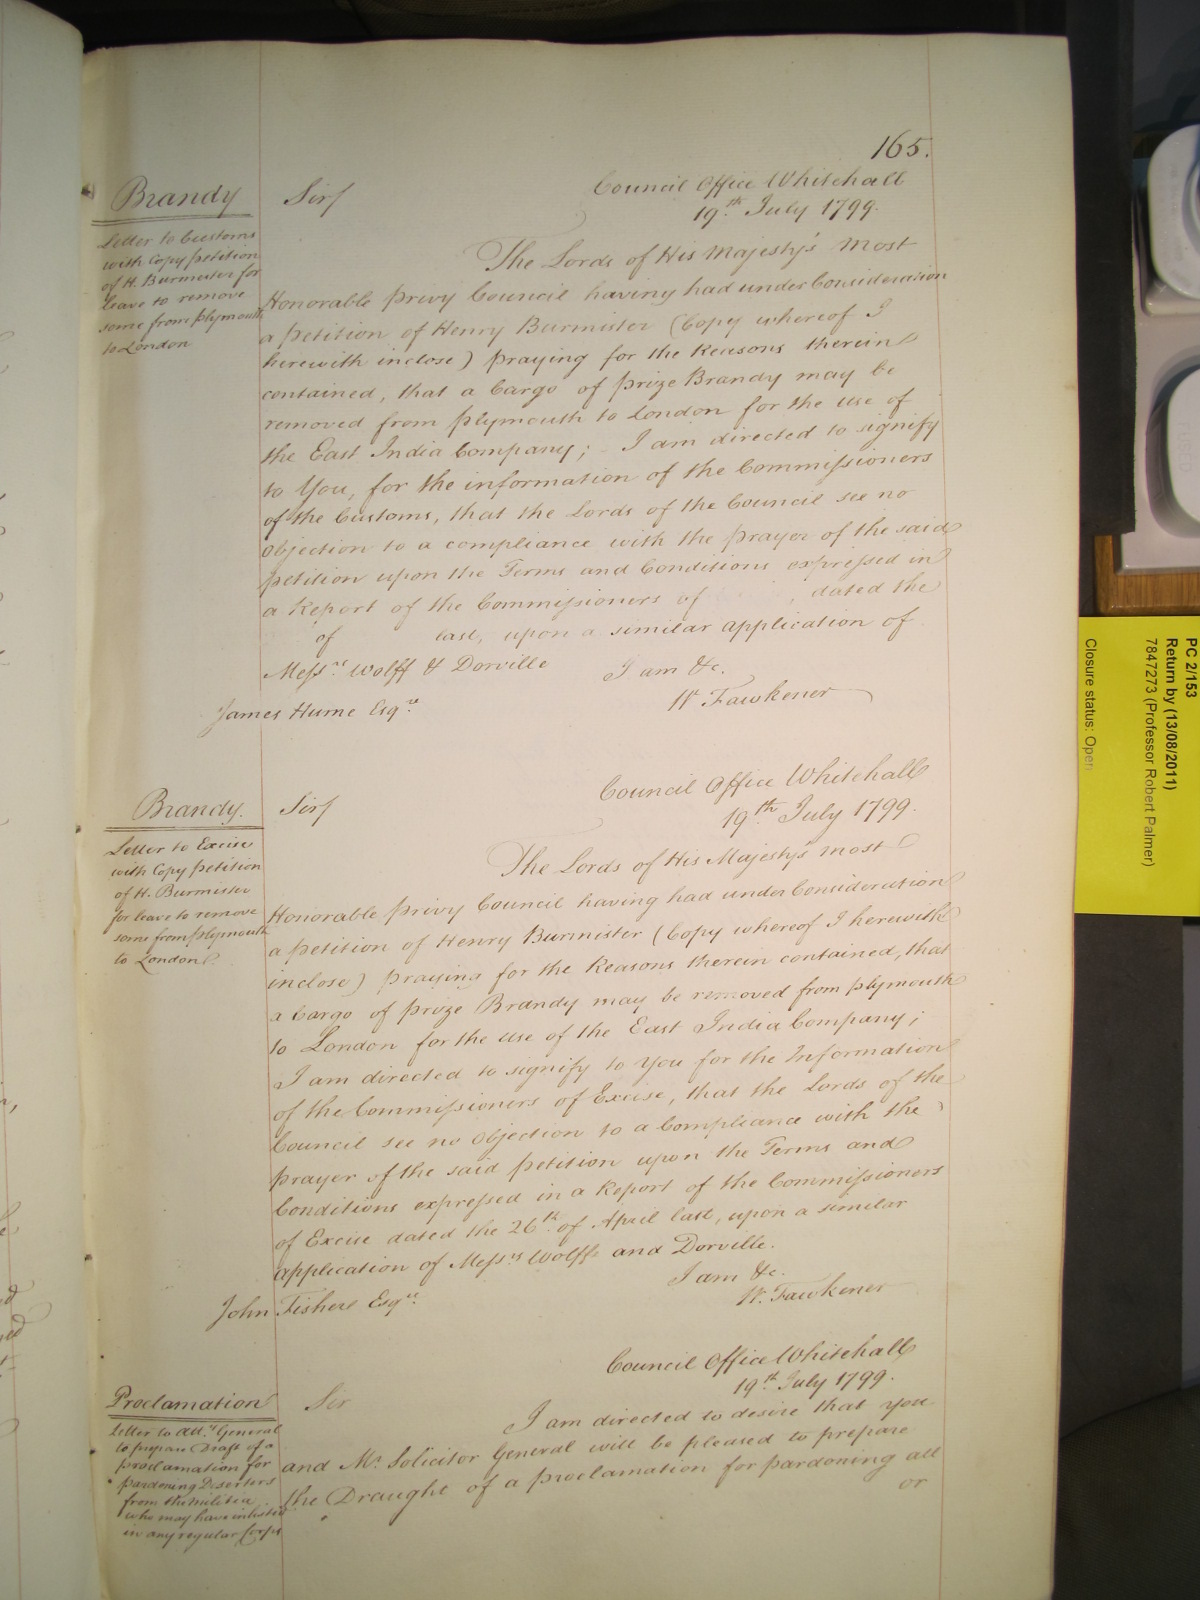 165.
Council Office Whitehall
19th July 1799.
Brandy
Letter to Customs
with Copy petition
of H. Burmester for
leave to remove
some from plymouth
to London
Sir/
The Lords of His Majesty's most
Honorable privy Council having had under Consideration
a petition of Henry Burmister (Copy whereof I
herewith inclose) praying for the Reasons therein
contained, that a Cargo of prize Brandy may be
removed from plymouth to London for the use of
the East India Company; I am directed to signify
to You, for the information of the Commissioners
of the Customs, that the Lords of the Council see no
Objection to a compliance with the prayer of the said
petition upon the Terms and Conditions expressed in
a Report of the Commissioners of , dated the
of last, upon a similar application of
Messrs Wolff & Dorville
I am &c.
W Fawkener
James Hume Esqre
Council Office Whitehall
19th July 1799.
Brandy.
Letter to Excise
with Copy petition
of H. Burmister
for leave to remove
some from plymouth
to London.
Sir/
The Lords of His Majesty's most
Honorable privy Council having had under Consideration
a petition of Henry Burmister (Copy whereof I herewith
inclose) praying for the Reasons therein contained, that
a Cargo of prize Brandy may be removed from plymouth
to London for the use of the East India Company;
I am directed to signify to You for the Information
of the Commissioners of Excise, that the Lords of the
Council see no Objection to a Compliance with the
prayer of the said petition upon the Terms and
Conditions expressed in a Report of the Commissioners
of Excise dated the 26th of April last, upon a similar
application of Messrs Wolffe and Dorville.
I am &c.
W. Fawkener
John Fishere Esqre
Council Office Whitehall
19th July 1799.
Proclamation
Letter to Atty General
to prepare Draft of a
proclamation for
pardoning Deserters
from the militia
who may have inlisted
in any regular Corps
Sir
I am directed to desire that you
and Mr Solicitor General will be pleased to prepare
the Draught of a proclamation for pardoning all
or
PC 2/153
Return by (13/08/2011)
7847273 (Professor Robert Palmer)
Closure status: Open